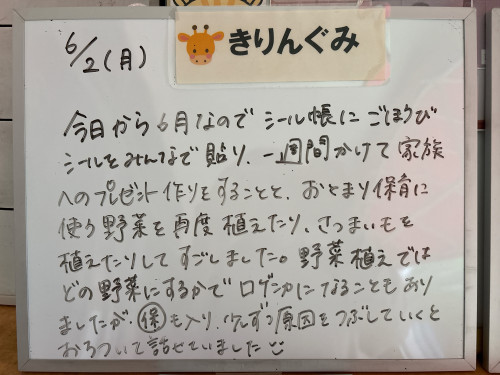 きりんぐみ
6/2(月)
今日から6月なので シール帳に ごほうび
シールをみんなで貼り、一週間かけて 家族
へのプレゼント作りをすることと、おとまり保育に
使う野菜を再度植えたり、さつまいもを
植えたりして すごしました。野菜植えでは
どの野菜にするかで ロゲンカになることもあり
ましたが、㋭も入り、少しずつ原因をつぶしていくと
おちついて話せていました